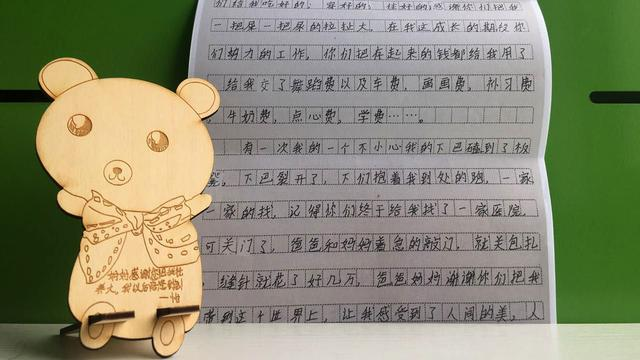 们给我吃好的，穿好的，住好的，感谢你们把我
一把屎一把尿的拉扯大。在我这成长的期段你
们努力的工作，你们把存起来的钱都给我用了
给我交了舞蹈费以及车费，画画费，补习费
，牛奶费，点心费，学费……。
有一次我的一个不小心我的下巴磕到了板
凳，下巴裂开了，下们抱着我到处的跑，一家
一家的找，记得你们终于给我找了一家医院，
可关门了，爸爸和妈妈着急的敲门，就关包扎
，缝针就花了好几万，爸爸妈妈谢谢你们把我
带到这个世界上，让我感受到了人间的美，人
妈妈感谢您把我
养大，我以后陪您到